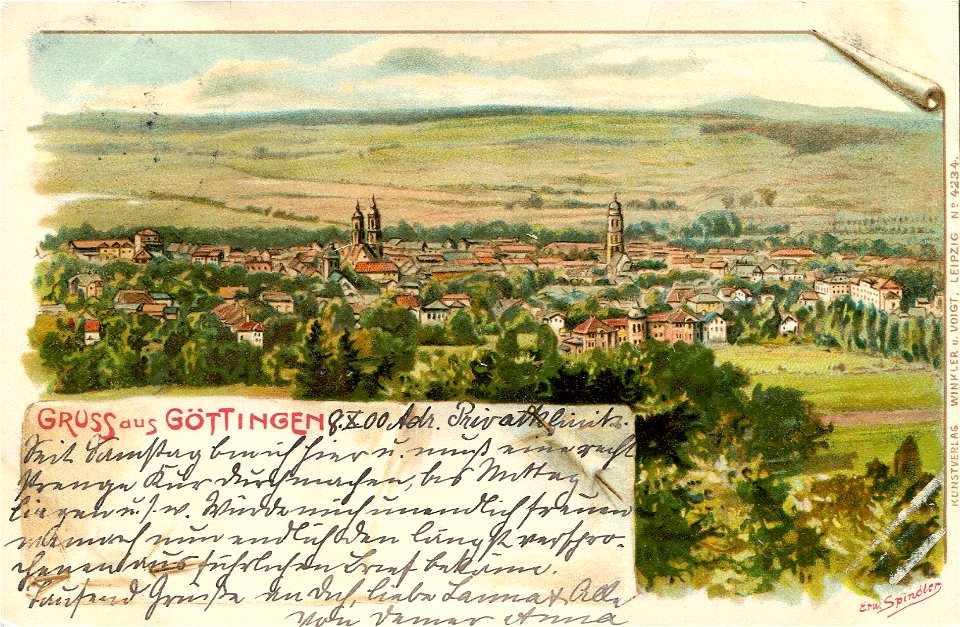 GRUSS aus GÖTTINGEN 8.X.00 Adr. Privatklinik.
Seit Samstag bin ich hier u. muß eine recht
strenge Kur durchmachen, bis Mittag
liegen u.s.w. Würde mich unendlich freuen
wenn ich nun endlich den längst verspro-
chenen ausführlichen Brief bekäme.
Tausend Grüße an Dich, liebe & Alle
Von Deiner Anna
Erw. Spindler
KUNSTVERLAG WINKLER u. VOIGT, LEIPZIG No 4234.